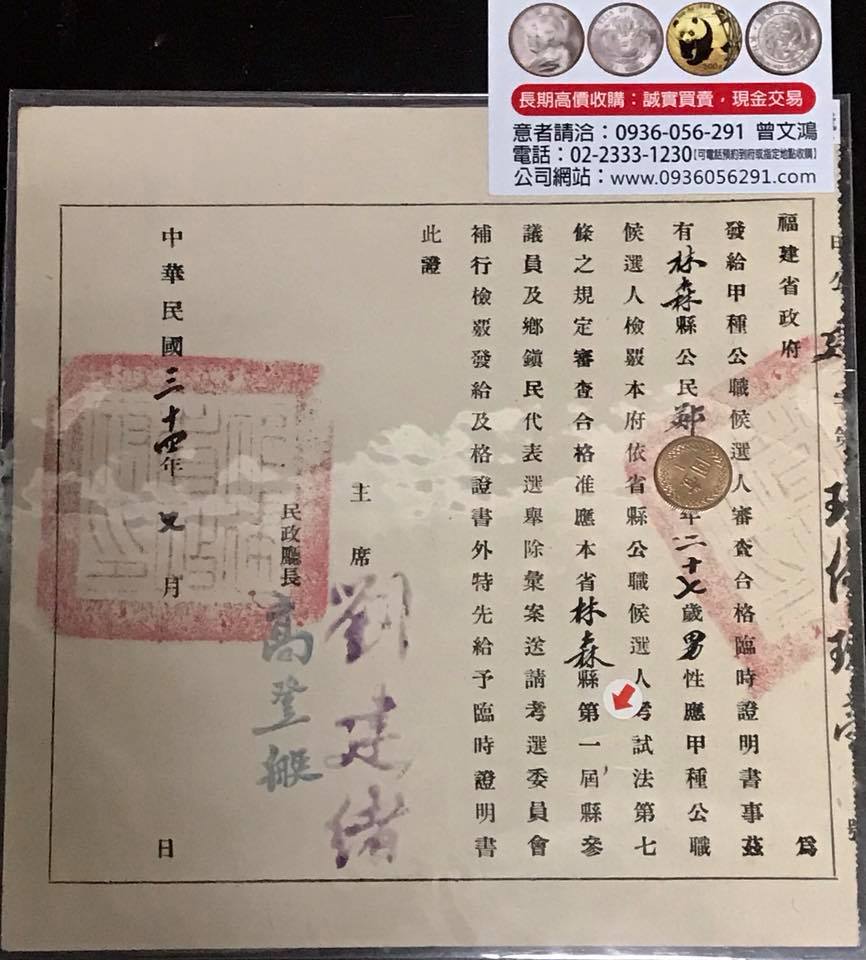 長期高價收購：誠實買賣，現金交易
意者請洽：0936-056-291 曾文鴻
電話：02-2333-1230【可電話預約到府或指定地點收購】
公司網站：www.0936056291.com
福建省政府 為
發給甲種公職候選人審查合格臨時證明書事茲
有林森縣公民鄭 年二十七歲男性應甲種公職
候選人檢覈本府依省縣公職候選人考試法第七
條之規定審查合格准應本省林森縣第一屆縣參
議員及鄉鎮民代表選舉除彙案送請考選委員會
補行檢覈發給及格證書外特先給予臨時證明書
此證
主席 劉建緒
民政廳長 高登艇
中華民國三十四年 月 日